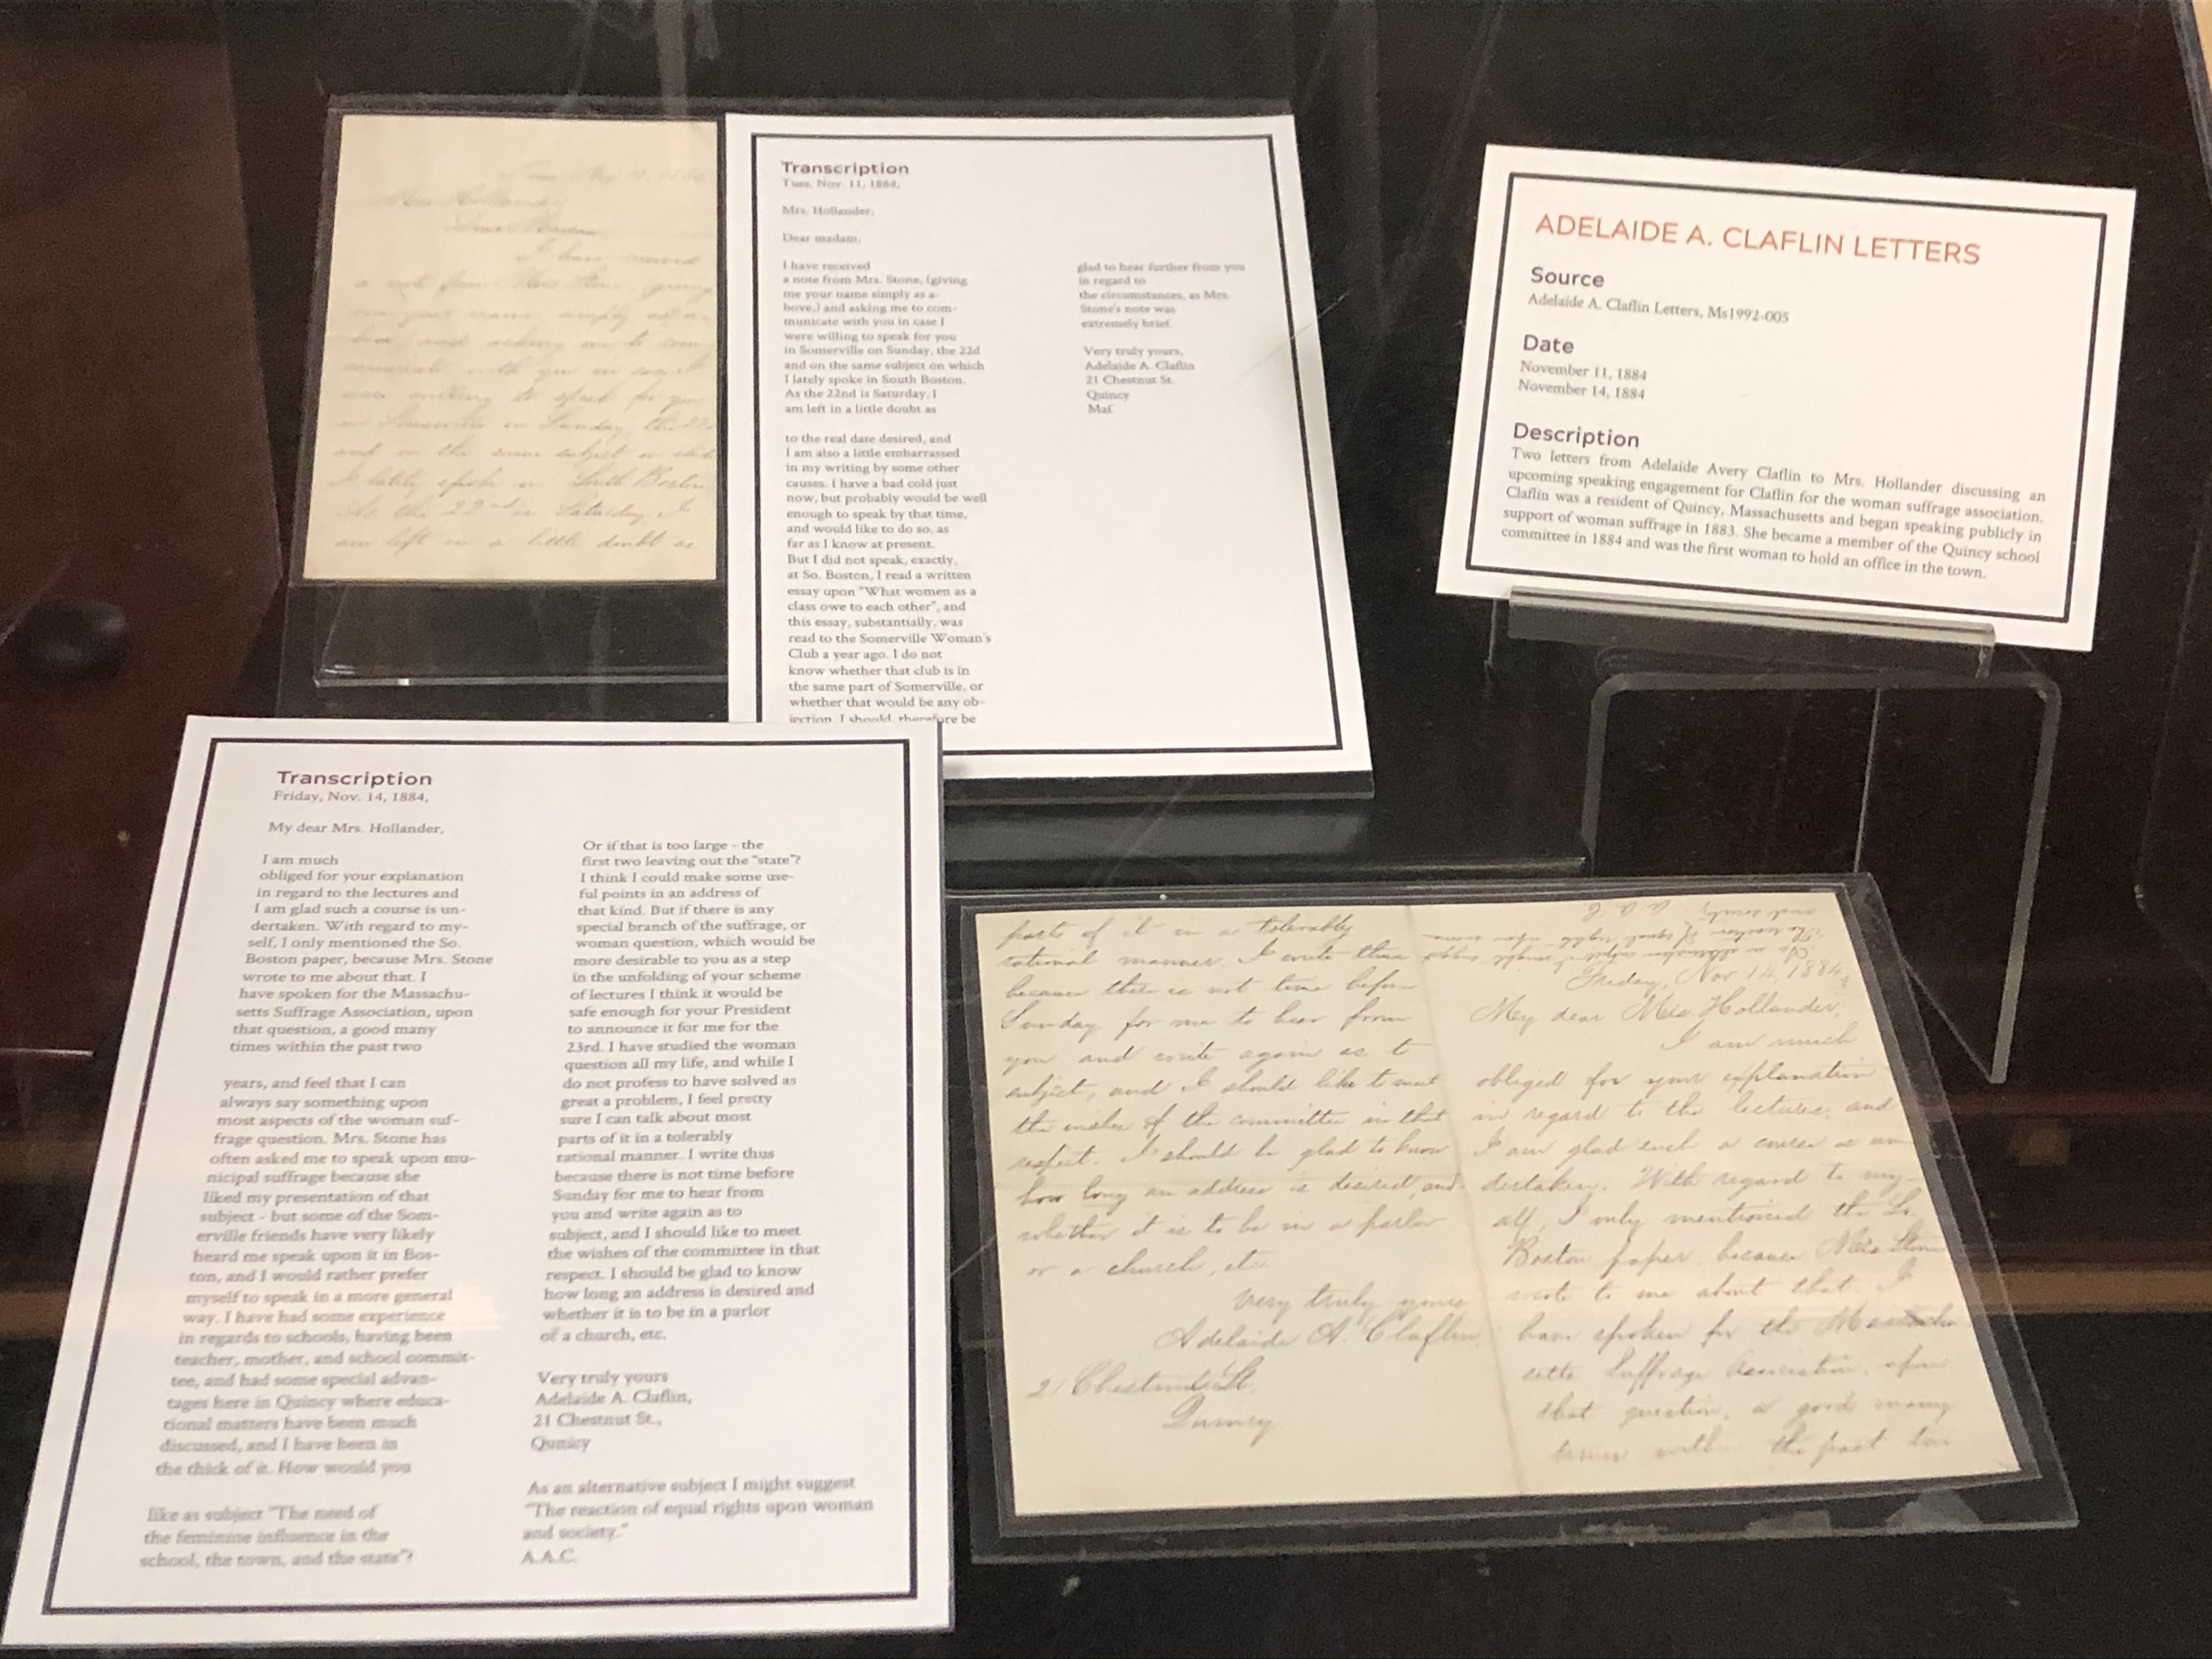 Mrs. Hollander
Dear Madam
I have received
a note from Mrs. Stone, giving
me your name simply as a-
bove, and asking me to com-
municate with you in case I
were willing to speak for you
in Somerville on Sunday, the 22d
and on the same subject on which
I lately spoke in South Boston.
As the 22nd is Saturday, I
am left in a little doubt as
Transcription
Tues. Nov. 11, 1884,
Mrs. Hollander,
Dear madam,
I have received
a note from Mrs. Stone, (giving
me your name simply as a-
bove,) and asking me to com-
municate with you in case I
were willing to speak for you
in Somerville on Sunday, the 22d
and on the same subject on which
I lately spoke in South Boston.
As the 22nd is Saturday, I
am left in a little doubt as
to the real date desired, and
I am also a little embarrassed
in my writing by some other
causes. I have a bad cold just
now, but probably would be well
enough to speak by that time,
and would like to do so, as
far as I know at present.
But I did not speak, exactly,
at So. Boston, I read a written
essay upon "What women as a
class owe to each other", and
this essay, substantially, was
read to the Somerville Woman's
Club a year ago. I do not
know whether that club is in
the same part of Somerville, or
whether that would be any ob-
jection. I should, therefore be
glad to hear further from you
in regard to
the circumstances, as Mrs.
Stone's note was
extremely brief.
Very truly yours,
Adelaide A. Claflin
21 Chestnut St.
Quincy
Maf.
ADELAIDE A. CLAFLIN LETTERS
Source
Adelaide A. Claflin Letters, Ms1992-005
Date
November 11, 1884
November 14, 1884
Description
Two letters from Adelaide Avery Claflin to Mrs. Hollander discussing an
upcoming speaking engagement for Claflin for the woman suffrage association.
Claflin was a resident of Quincy, Massachusetts and began speaking publicly in
support of woman suffrage in 1883. She became a member of the Quincy school
committee in 1884 and was the first woman to hold an office in the town.
Transcription
Friday, Nov. 14, 1884,
My dear Mrs. Hollander,
I am much
obliged for your explanation
in regard to the lectures and
I am glad such a course is un-
dertaken. With regard to my-
self, I only mentioned the So.
Boston paper, because Mrs. Stone
wrote to me about that. I
have spoken for the Massachu-
setts Suffrage Association, upon
that question, a good many
times within the past two
years, and feel that I can
always say something upon
most aspects of the woman suf-
frage question. Mrs. Stone has
often asked me to speak upon mu-
nicipal suffrage because she
liked my presentation of that
subject - but some of the Som-
erville friends have very likely
heard me speak upon it in Bos-
ton, and I would rather prefer
myself to speak in a more general
way. I have had some experience
in regards to schools, having been
teacher, mother, and school commit-
tee, and had some special advan-
tages here in Quincy where educa-
tional matters have been much
discussed, and I have been in
the thick of it. How would you
like as subject "The need of
the feminine influence in the
school, the town, and the state"?
Or if that is too large - the
first two leaving out the "state"?
I think I could make some use-
ful points in an address of
that kind. But if there is any
special branch of the suffrage, or
woman question, which would be
more desirable to you as a step
in the unfolding of your scheme
of lectures I think it would be
safe enough for your President
to announce it for me for the
23rd. I have studied the woman
question all my life, and while I
do not profess to have solved as
great a problem, I feel pretty
sure I can talk about most
parts of it in a tolerably
rational manner. I write thus
because there is not time before
Sunday for me to hear from
you and write again as to
subject, and I should like to meet
the wishes of the committee in that
respect. I should be glad to know
how long an address is desired and
whether it is to be in a parlor
of a church, etc.
Very truly yours
Adelaide A. Claflin,
21 Chestnut St.,
Qunicy
As an alternative subject I might suggest
"The reaction of equal rights upon woman
and society."
A.A.C.
parts of it in a tolerably
rational manner. I write thus
because there is not time before
Sunday for me to hear from
you and write again as to
subject, and I should like to meet
the wishes of the committee in that
respect. I should be glad to know
how long an address is desired, and
whether it is to be in a parlor
or a church, etc.
Very truly yours
Adelaide A. Claflin,
21 Chestnut St.,
Quincy
As an alternative subject I might suggest
"The reaction of equal rights upon woman
and society"
A. A. C.
Friday, Nov 14, 1884,
My dear Mrs Hollander,
I am much
obliged for your explanation
in regard to the lectures, and
I am glad such a course is un-
dertaken. With regard to my-
self, I only mentioned the So.
Boston paper, because Mrs. Stone
wrote to me about that. I
have spoken for the Massachu-
setts Suffrage Association, upon
that question, a good many
times within the past two